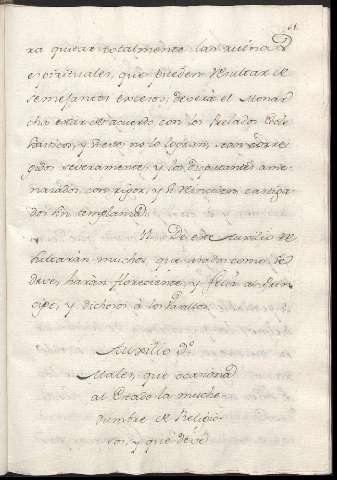 ra quitar totalmente las ruinas
espirituales, que pueden resultar de
semejantes excesos, deverá el Monar
cha estar de acuerdo con los Prelados Ecle
siasticos, y si esto no lo logran, sean corre
gidos severamente, y los disputantes ame
nazados, con rigor, y si reinciden castiga
dos sin templanza.
De este Auxilio re
sultarán muchos, que usados como se
deve, harán floreciente, y feliz al Prin
cipe, y dichosos à los Vasallos.
Auxilio
Males, que ocasiona
al Estado la muche
dumbre de Religio
sos, y que deve